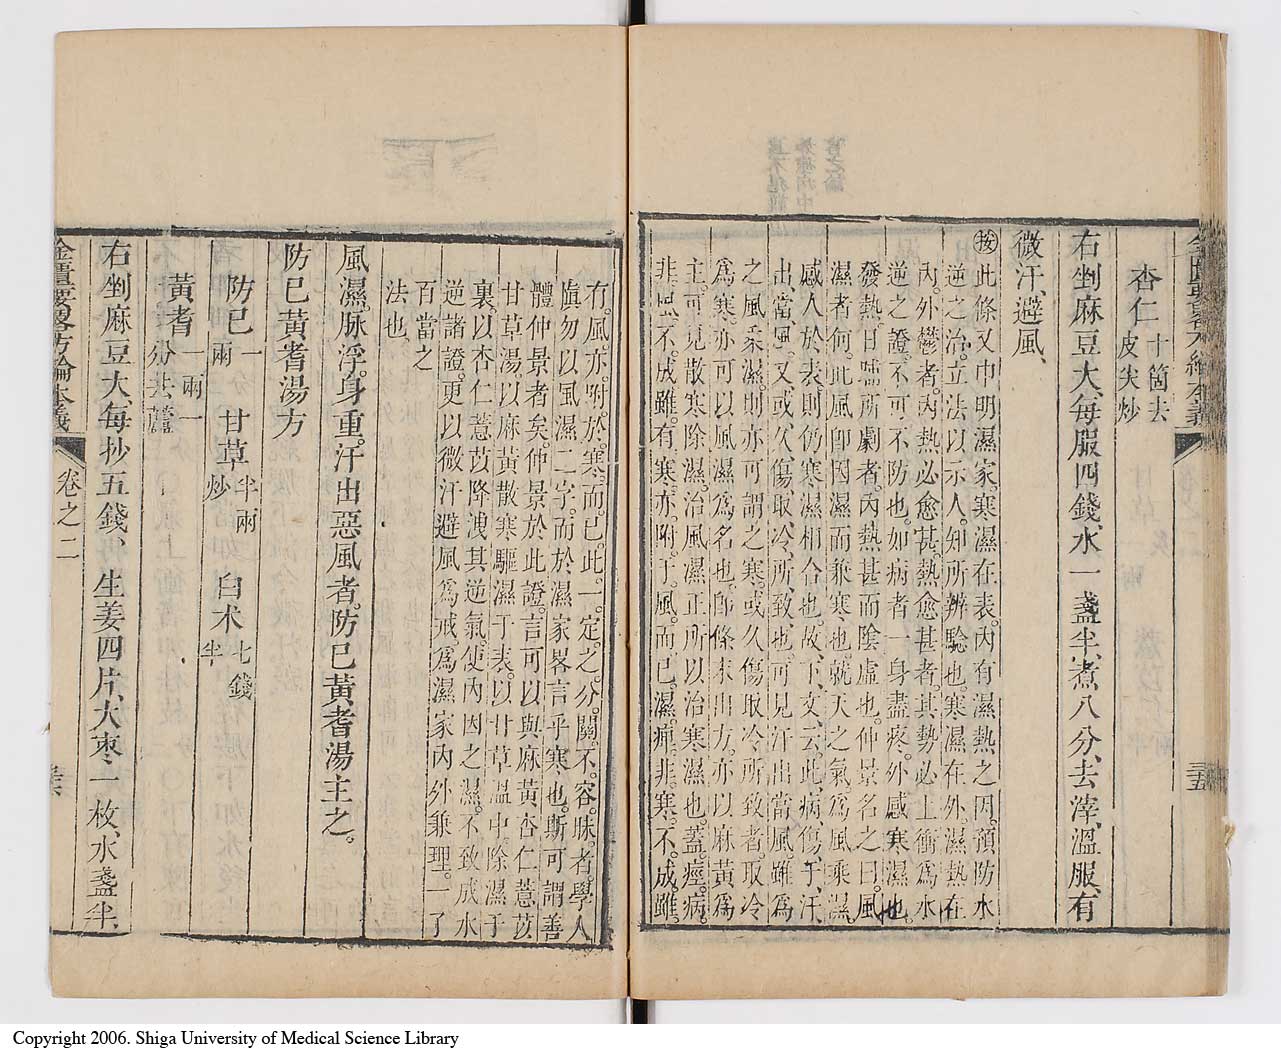 杏仁 十箇去皮尖炒
右剉麻豆大、每服四錢、水一盞半、煮八分、去滓、溫服、有
微汗、避風、
按此條又申明濕家、寒濕在表、內有濕熱之因、預防水
逆之治、立法以示人、知所辨驗也、寒濕在外、濕熱在
內、外鬱者、內熱必愈甚、熱愈甚者、其勢必上衝爲水
逆之證、不可不防也。如病者一身盡疼、外感寒濕也、
發熱日晡所劇者、內熱甚而陰虛也。仲景名之曰風
濕者何、此風卽因濕而兼寒也。就天之氣、爲風乘濕、
感人於表、則仍寒濕相合也。故下文云、此病傷于汗
出當風、又或久傷取冷所致也、可見汗出當風、雖爲
之風乘濕、則亦可謂之寒、或久傷取冷所致者、取冷
爲寒、亦可以風濕爲名也。卽條末出方、亦以麻黃爲
主、可見散寒除濕、治風濕正所以治寒濕也。蓋痙病
非風不成、雖有寒亦附于風而已。濕痺非寒不成、雖
有風亦附於寒而已。此一定之分關、不容昧者、學人
愼勿以風濕二字、而於濕家畧言乎寒也、斯可謂善
體仲景者矣。仲景於此證、言可以與麻黃杏仁薏苡
甘草湯、以麻黃散寒驅濕于表、以甘草溫中除濕于
裏、以杏仁薏苡降洩其逆氣、使內因之濕、不致成水
逆諸證、更以微汗避風爲戒、爲濕家內外兼理、一了
百當之
法也、
風濕、脉浮身重、汗出惡風者、防已黃耆湯主之。
防已黃耆湯方
防已 一兩 甘草 半兩炒 白术 七錢半
黃耆 一兩一分去蘆
右剉麻豆大、每抄五錢、生姜四片、大枣一枚、水盞半、
金匱要畧方論本義 卷之二